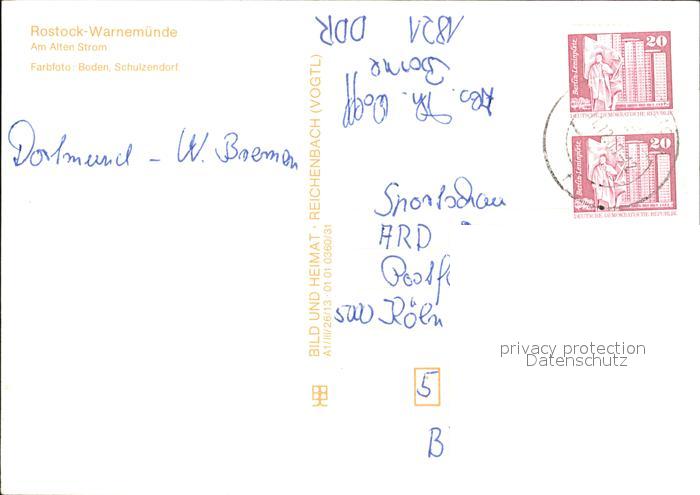 Rostock-Warnemünde
Am Alten Strom
Farbfoto: Boden, Schulzendorf
Dortmund – W. Bremen
BILD UND HEIMAT · REICHENBACH (VOGTL)
A1/III/26/13 · 01 01 0360/31
Abs.
Borne
1821
DDR
20
Berlin-Leninplatz
DEUTSCHE DEMOKRATISCHE REPUBLIK
20
Berlin-Leninplatz
DEUTSCHE DEMOKRATISCHE REPUBLIK
Sportschau
ARD
Postf
5000 Köln
privacy protection
Datenschutz
5
B